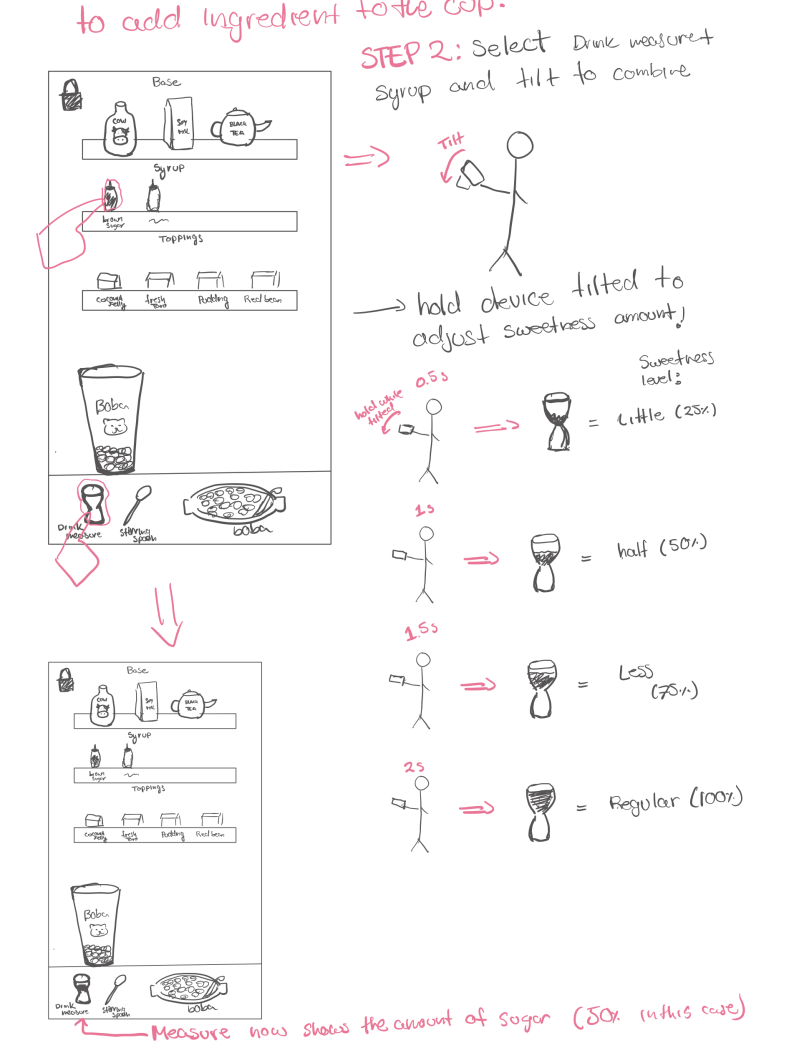 to add ingredient to the cup.
STEP 2: Select Drink measure +
Syrup and tilt to combine
Base
COW
SOY
MILK
BLACK
TEA
Syrup
brown
sugar
TOPPINGS
coconut
jelly
fresh
taro
Pudding
Red bean
Boba
Drink
measure
stirring
spoon
boba
TILT
hold device tilted to
adjust sweetness amount!
Sweetness
level:
0.5s
hold while
tilted
= Little (25%)
1s
= half (50%)
1.5s
= Less
(75%)
2s
= Regular (100%)
Base
COW
SOY
MILK
BLACK
TEA
Syrup
brown
sugar
TOPPINGS
coconut
jelly
fresh
taro
Pudding
Red bean
Boba
Drink
measure
stirring
spoon
boba
Measure now shows the amount of sugar (50% in this case)